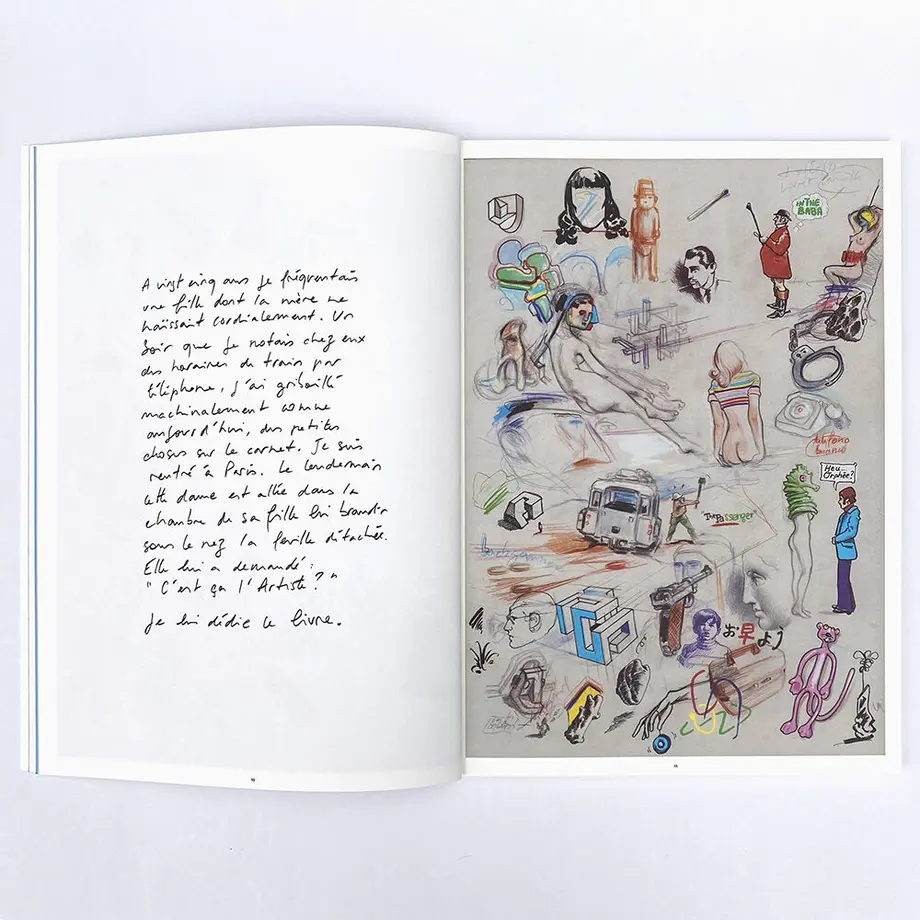 A vingt cinq ans je fréquentais
une fille dont la mère me
haïssait cordialement. Un
soir que je notais chez eux
des horaires du train par
téléphone, j'ai gribouillé
machinalement comme
aujourd'hui, des petites
choses sur le carnet. Je suis
rentré à Paris. Le lendemain
cette dame est allée dans la
chambre de sa fille lui brandir
sous le nez la feuille détachée.
Elle lui a demandé :
"C'est ça l'Artiste ? "
Je lui dédie ce livre.
IN THE
BABA
telefono
bianco
Heu...
Orphée?
"The Passenger"
EGO
お早よう